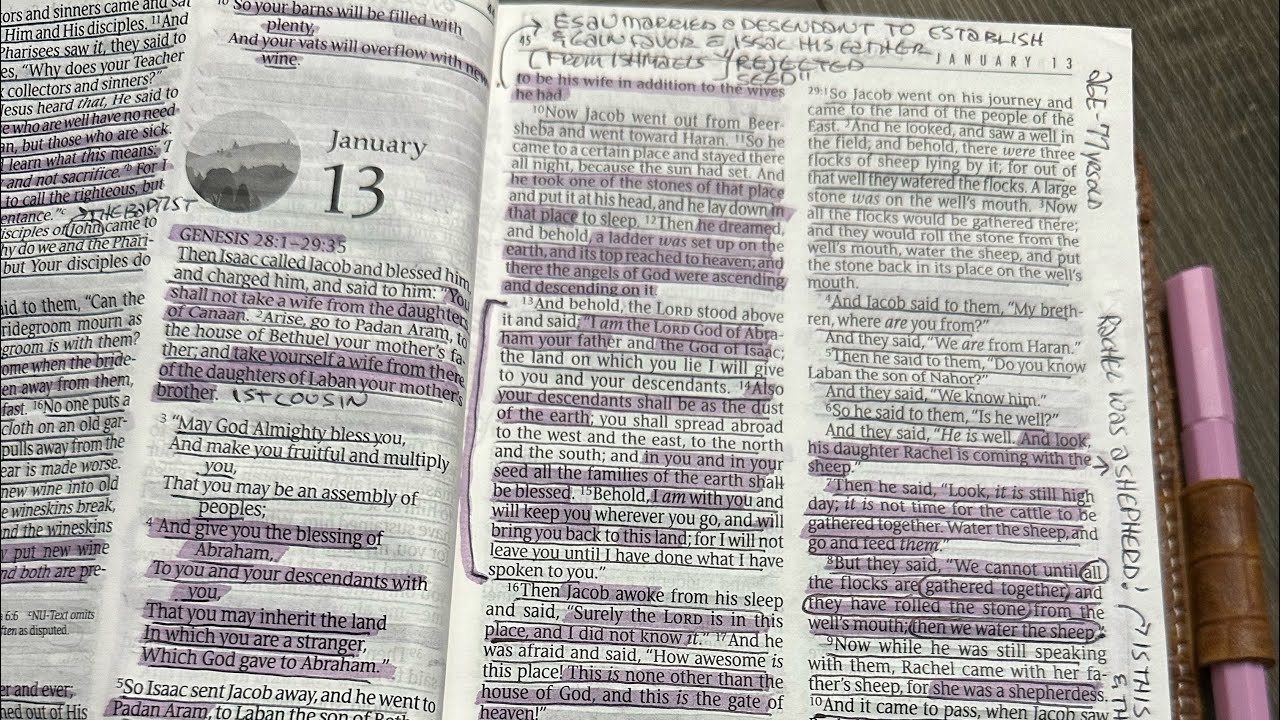 ctors and sinners came and sat
Him and His disciples. ¹¹And
Pharisees saw it, they said to
es, “Why does your Teacher
collectors and sinners?”
Jesus heard that, He said to
e who are well have no need
an, but those who are sick.
learn what this means: ‘I
and not sacrifice.’ For I
to call the righteous, but
entance.”
THE BAPTIST
isciples of John came to
hy do we and the Phari-
but Your disciples do
aid to them, “Can the
ridegroom mourn as
groom is with them?
ome when the bride-
en away from them,
fast. ¹⁶No one puts a
cloth on an old gar-
pulls away from the
ear is made worse.
new wine into old
e wineskins break,
nd the wineskins
put new wine
nd both are pre-
6:6 ᶜNU-Text omits
ften as disputed.
er and ever;
ned out of His
¹⁰ So your barns will be filled with
plenty,
And your vats will overflow with new
wine.
January
13
GENESIS 28:1–29:35
Then Isaac called Jacob and blessed him,
and charged him, and said to him: “You
shall not take a wife from the daughters
of Canaan. ²Arise, go to Padan Aram, to
the house of Bethuel your mother’s fa-
ther; and take yourself a wife from there
of the daughters of Laban your mother’s
brother. 1ST COUSIN
³ “May God Almighty bless you,
And make you fruitful and multiply
you,
That you may be an assembly of
peoples;
⁴ And give you the blessing of
Abraham,
To you and your descendants with
you,
That you may inherit the land
In which you are a stranger,
Which God gave to Abraham.”
⁵So Isaac sent Jacob away, and he went to
Padan Aram, to Laban the son of Beth
ESAU MARRIED a DESCENDANT TO ESTABLISH
& GAIN FAVOR ISSAC HIS FATHER
(FROM ISHMAELS REJECTED
SEED!!
45
JANUARY 13
to be his wife in addition to the wives
he had.
¹⁰Now Jacob went out from Beer-
sheba and went toward Haran. ¹¹So he
came to a certain place and stayed there
all night, because the sun had set. And
he took one of the stones of that place
and put it at his head, and he lay down in
that place to sleep. ¹²Then he dreamed,
and behold, a ladder was set up on the
earth, and its top reached to heaven; and
there the angels of God were ascending
and descending on it.
¹³And behold, the LORD stood above
it and said: “I am the LORD God of Abra-
ham your father and the God of Isaac;
the land on which you lie I will give
to you and your descendants. ¹⁴Also
your descendants shall be as the dust
of the earth; you shall spread abroad
to the west and the east, to the north
and the south; and in you and in your
seed all the families of the earth shall
be blessed. ¹⁵Behold, I am with you and
will keep you wherever you go, and will
bring you back to this land; for I will not
leave you until I have done what I have
spoken to you.”
¹⁶Then Jacob awoke from his sleep
and said, “Surely the LORD is in this
place, and I did not know it.” ¹⁷And he
was afraid and said, “How awesome is
this place! This is none other than the
house of God, and this is the gate of
heaven!”
²⁹:¹So Jacob went on his journey and
came to the land of the people of the
East. ²And he looked, and saw a well in
the field; and behold, there were three
flocks of sheep lying by it; for out of
that well they watered the flocks. A large
stone was on the well’s mouth. ³Now
all the flocks would be gathered there;
and they would roll the stone from the
well’s mouth, water the sheep, and put
the stone back in its place on the well’s
mouth.
⁴And Jacob said to them, “My breth-
ren, where are you from?”
And they said, “We are from Haran.”
⁵Then he said to them, “Do you know
Laban the son of Nahor?”
And they said, “We know him.”
⁶So he said to them, “Is he well?”
And they said, “He is well. And look,
his daughter Rachel is coming with the
sheep.”
⁷Then he said, “Look, it is still high
day; it is not time for the cattle to be
gathered together. Water the sheep, and
go and feed them.”
⁸But they said, “We cannot until all
the flocks are gathered together, and
they have rolled the stone from the
well’s mouth; then we water the sheep.”
⁹Now while he was still speaking
with them, Rachel came with her fa-
ther’s sheep, for she was a shepherdess.
¹⁰And it came to pass, when Jacob saw
AGE - 77 yrs old
RACHEL WAS a SHEPHERD!
IS THIS